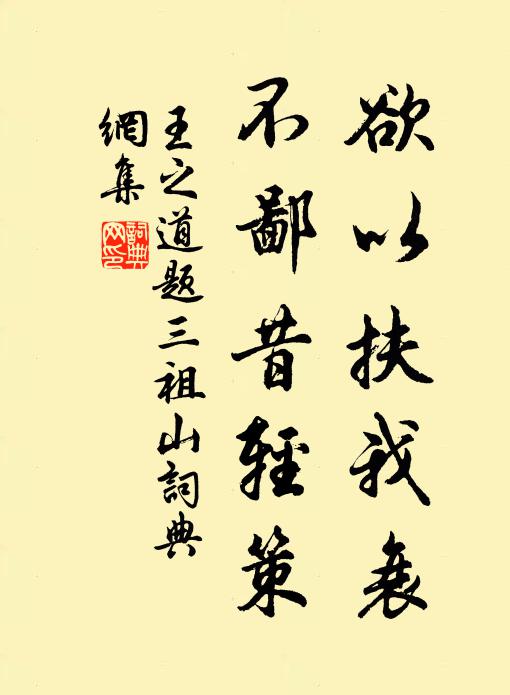 欲以扶我衰
不鄙昔輕策
王之道题三祖山詞典
網集
詞典
网印